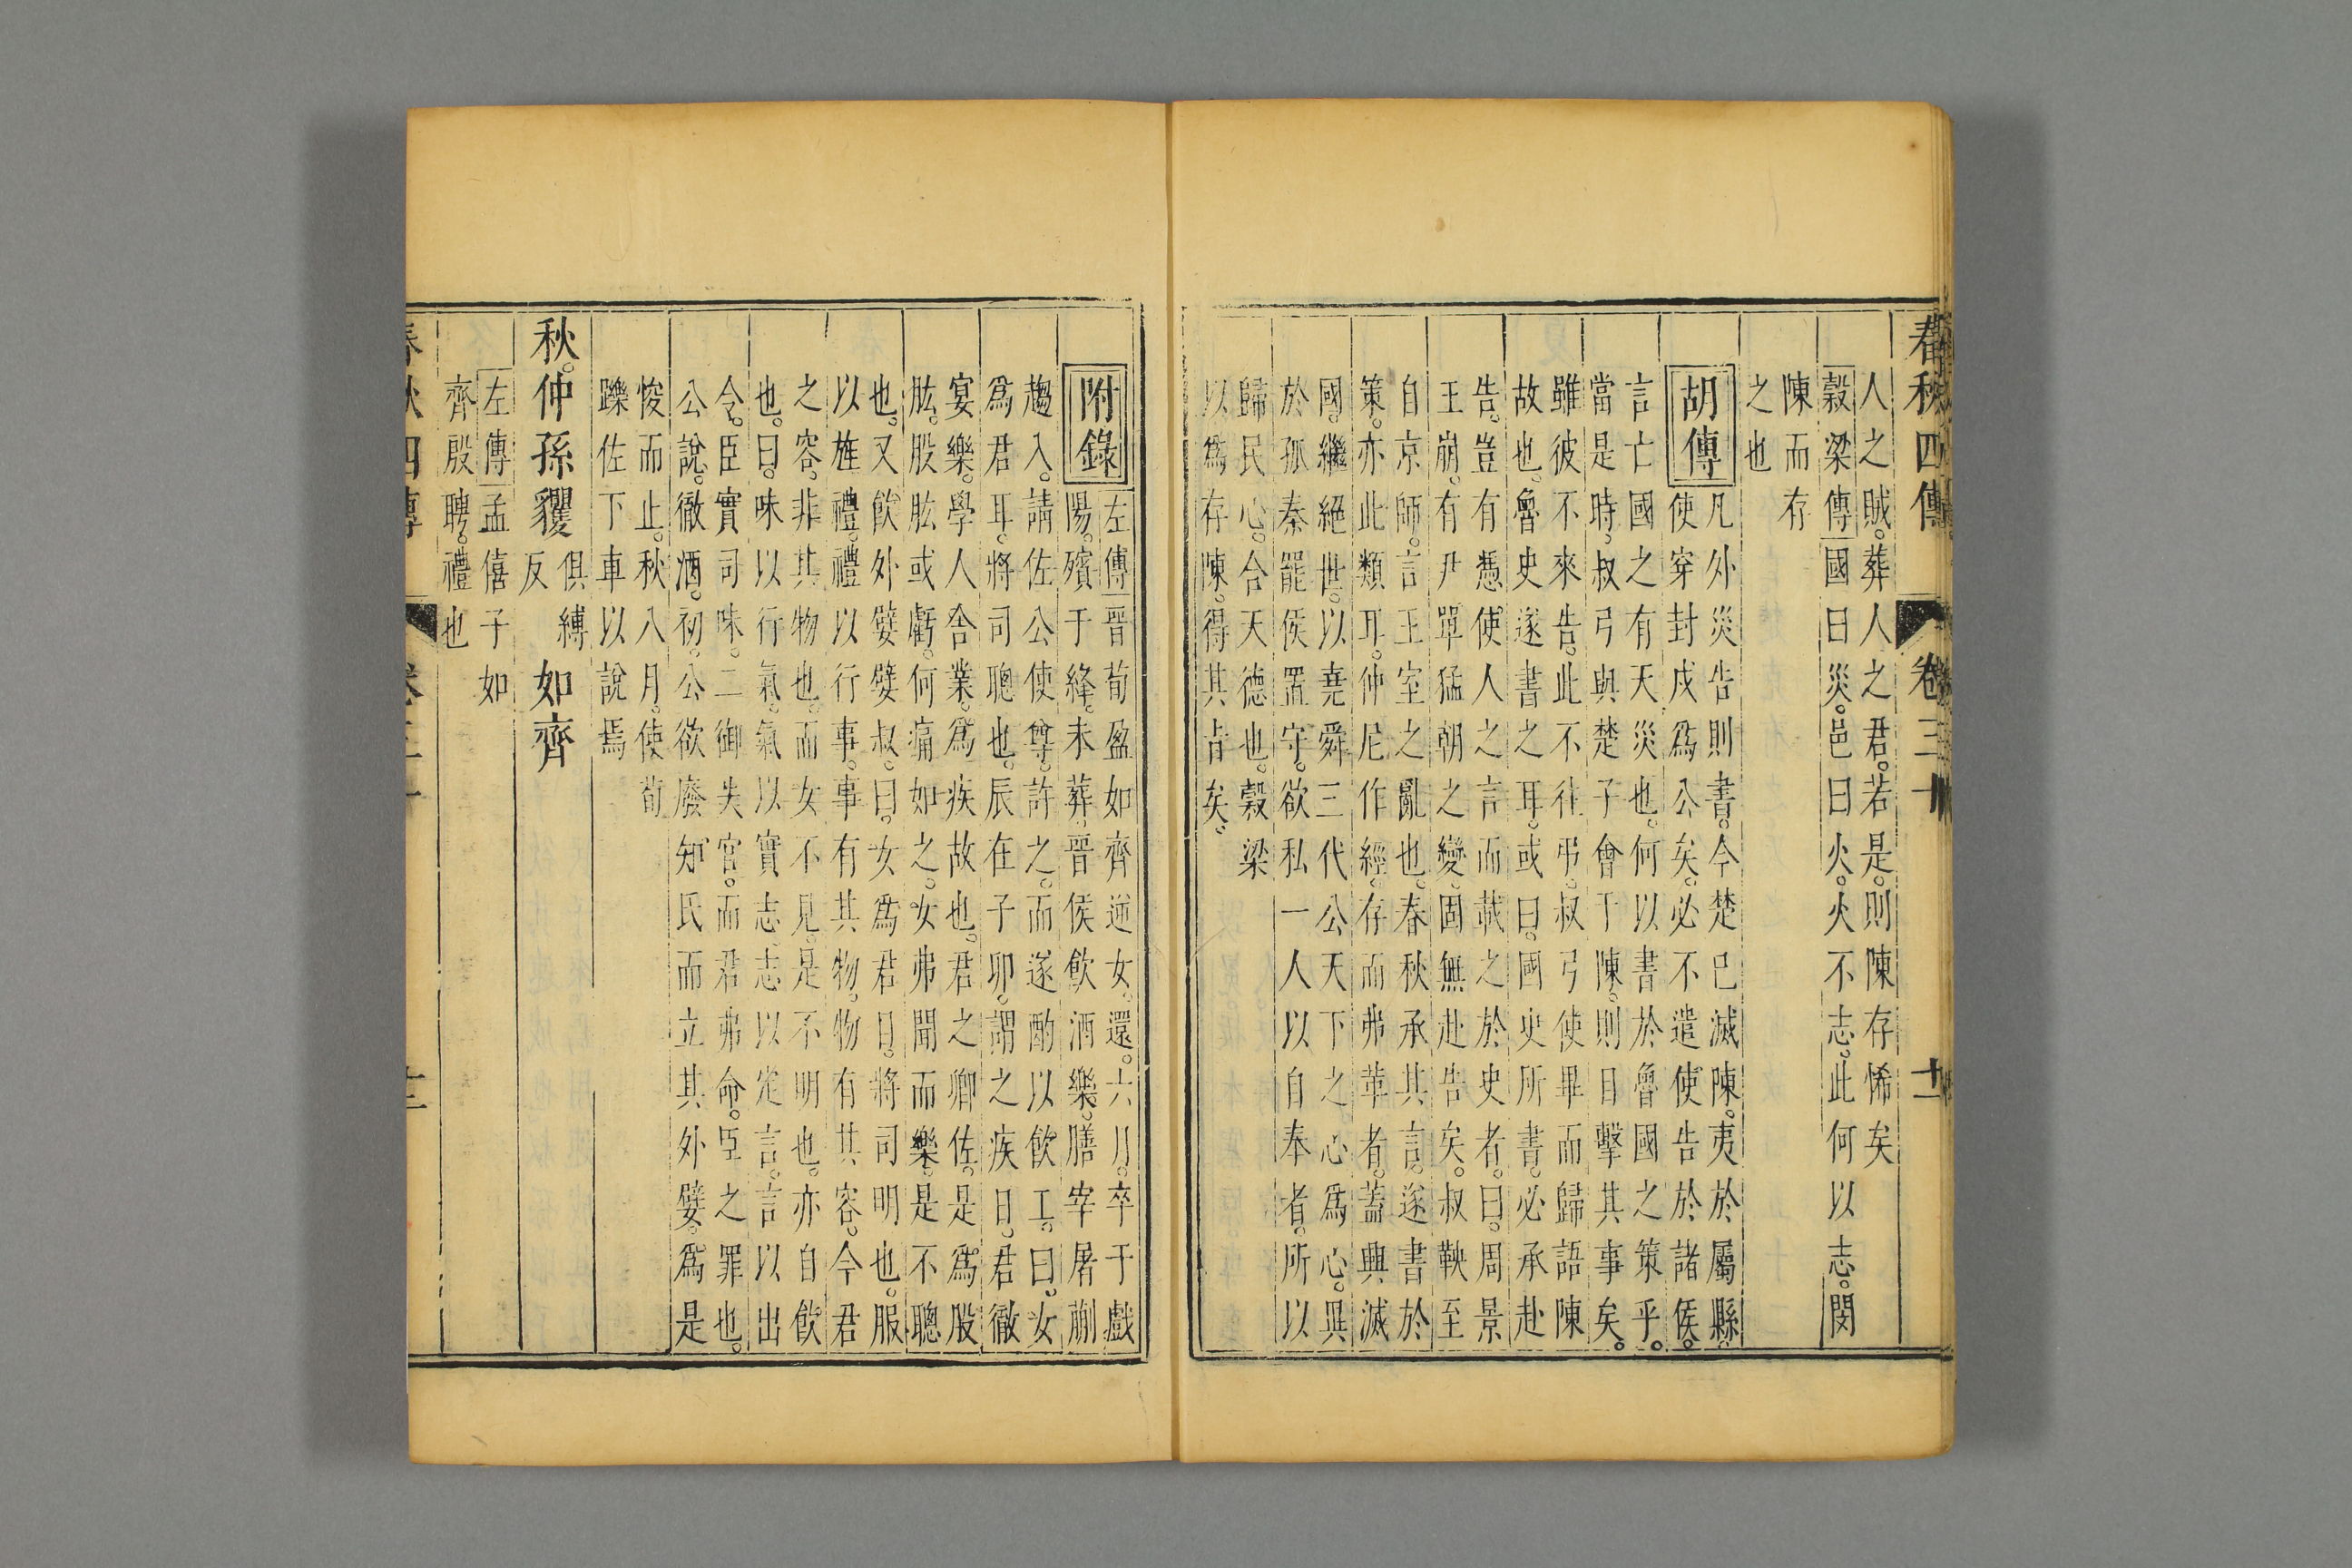 春秋四傳　卷三十　十一
人之賊。葬人之君。若是。則陳存悕矣
穀梁傳國曰災。邑曰火。火不志。此何以志。閔
陳而存
之也
胡傳凡外災告則書。今楚已滅陳。夷於屬縣。
使穿封戍爲公矣。必不遣使告於諸侯。
言亡國之有天災也。何以書於魯國之策乎。
當是時。叔弓與楚子會于陳。則目擊其事矣。
雖彼不來告。此不往弔。叔弓使畢而歸語陳
故也。魯史遂書之耳。或曰。國史所書。必承赴
告。豈有憑使人之言而載之於史者。曰。周景
王崩。有尹單猛朝之變。固無赴告矣。叔鞅至
自京師。言王室之亂也。春秋承其言。遂書於
策。亦此類耳。仲尼作經。存而弗革者。蓋興滅
國。繼絕世。以堯舜三代公天下之心爲心。異
於孤秦罷侯置守。欲私一人以自奉者。所以
歸民心。合天德也。穀梁
以爲存陳。得其旨矣。
附錄左傳晉荀盈如齊逆女。還。六月。卒于戲
陽。殯于絳。未葬。晉侯飮酒樂。膳宰屠蒯
趨入。請佐公使尊。許之。而遂酌以飮工。曰。女
爲君耳。將司聰也。辰在子卯。謂之疾日。君徹
宴樂。學人舍業。爲疾故也。君之卿佐。是爲股
肱。股肱或虧。何痛如之。女弗聞而樂。是不聰
也。又飮外嬖嬖叔。曰。女爲君目。將司明也。服
以旌禮。禮以行事。事有其物。物有其容。今君
之容。非其物也。而女不見。是不明也。亦自飮
也。曰。味以行氣。氣以實志。志以定言。言以出
令。臣實司味。二御失官。而君弗命。臣之罪也。
公說。徹酒。初。公欲廢知氏而立其外嬖。爲是
悛而止。秋八月。使荀
躒佐下車以說焉
秋。仲孫貜俱縛反如齊
左傳孟僖子如
齊殷聘。禮也